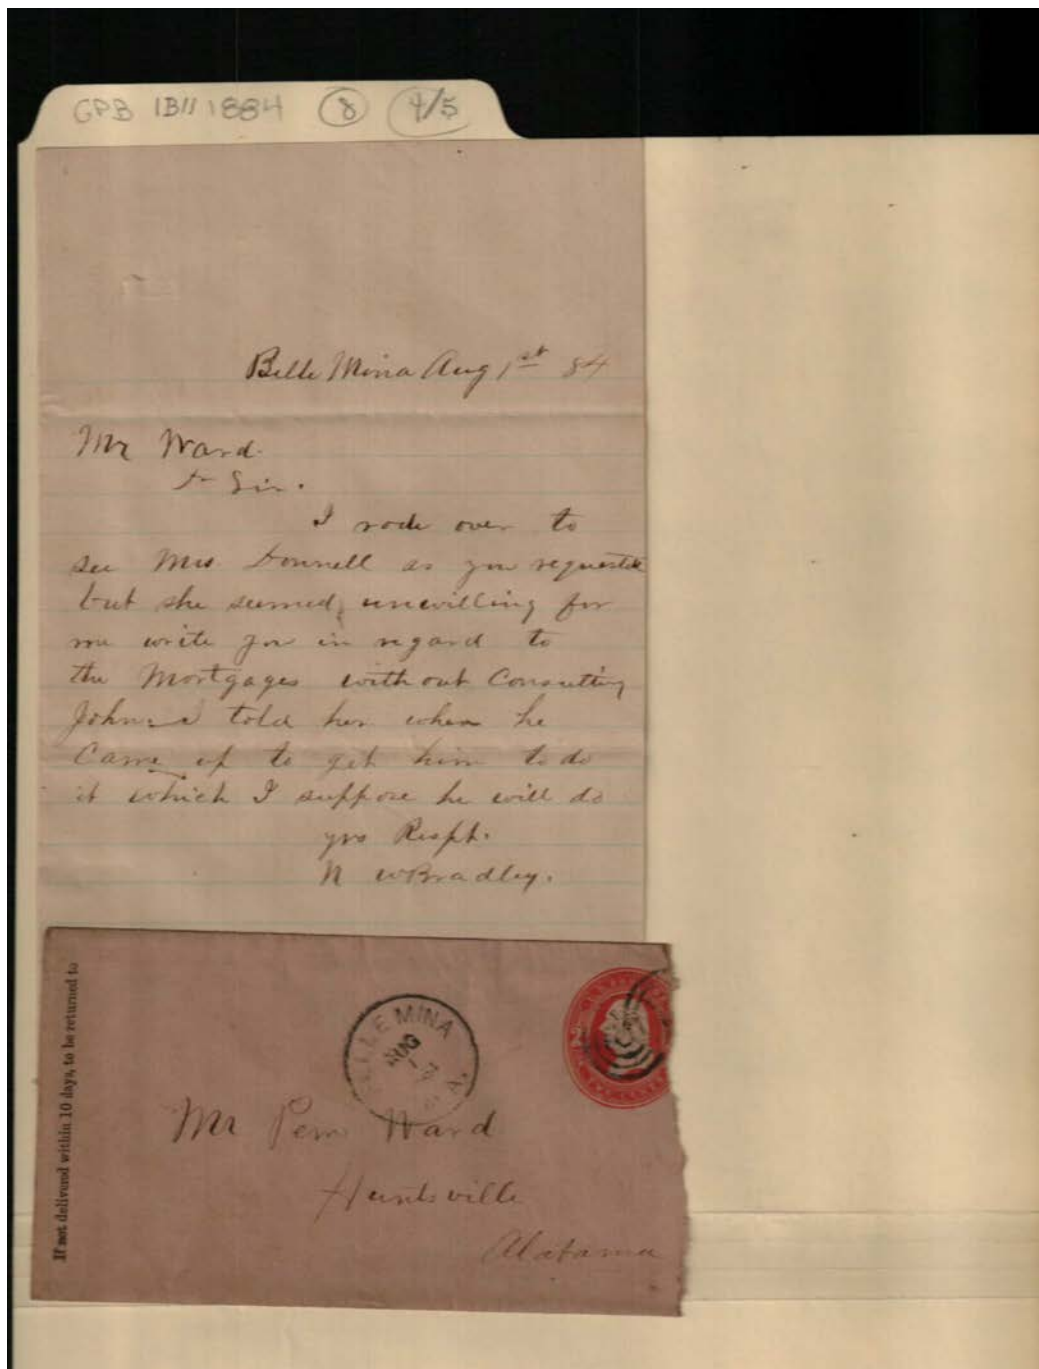 GPB 1B11 1884 8 4/5
Belle Mina Aug 1st 84
Mr Ward.
Dr Sir.
I rode over to
see Mrs. Donnell as you requested
but she seemed unwilling for
me write you in regard to
the Mortgages without Consulting
John. I told her when he
Came up to get him to do
it which I suppose he will do
yrs Respt.
N W Bradley.
If not delivered within 10 days, to be returned to
BELLE MINA
AUG
1
Mr Ward
Huntsville
Alabama